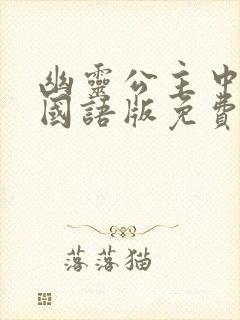 幽靈公主中
國語版免費
落落猫